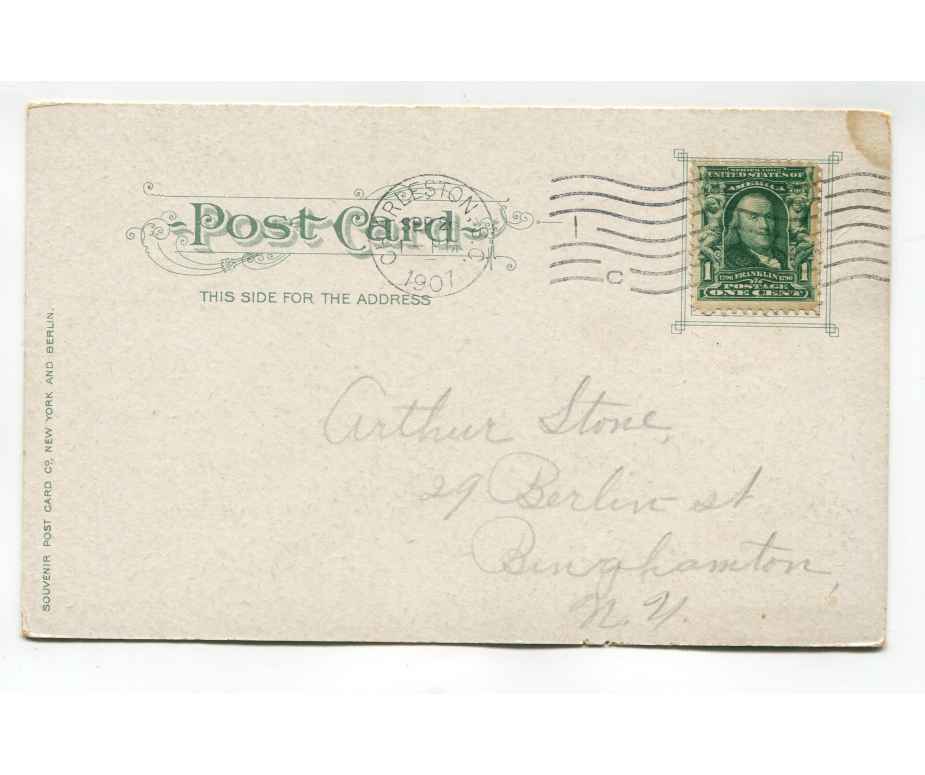 Post Card
THIS SIDE FOR THE ADDRESS
CHARLESTON, S.C.
1907
1
C
SERIES 1902
UNITED STATES OF
AMERICA
1 1
1706 FRANKLIN 1790
POSTAGE
ONE CENT
Arthur Stone,
29 Berlin st
Binghamton,
N.Y.
SOUVENIR POST CARD CO., NEW YORK AND BERLIN.